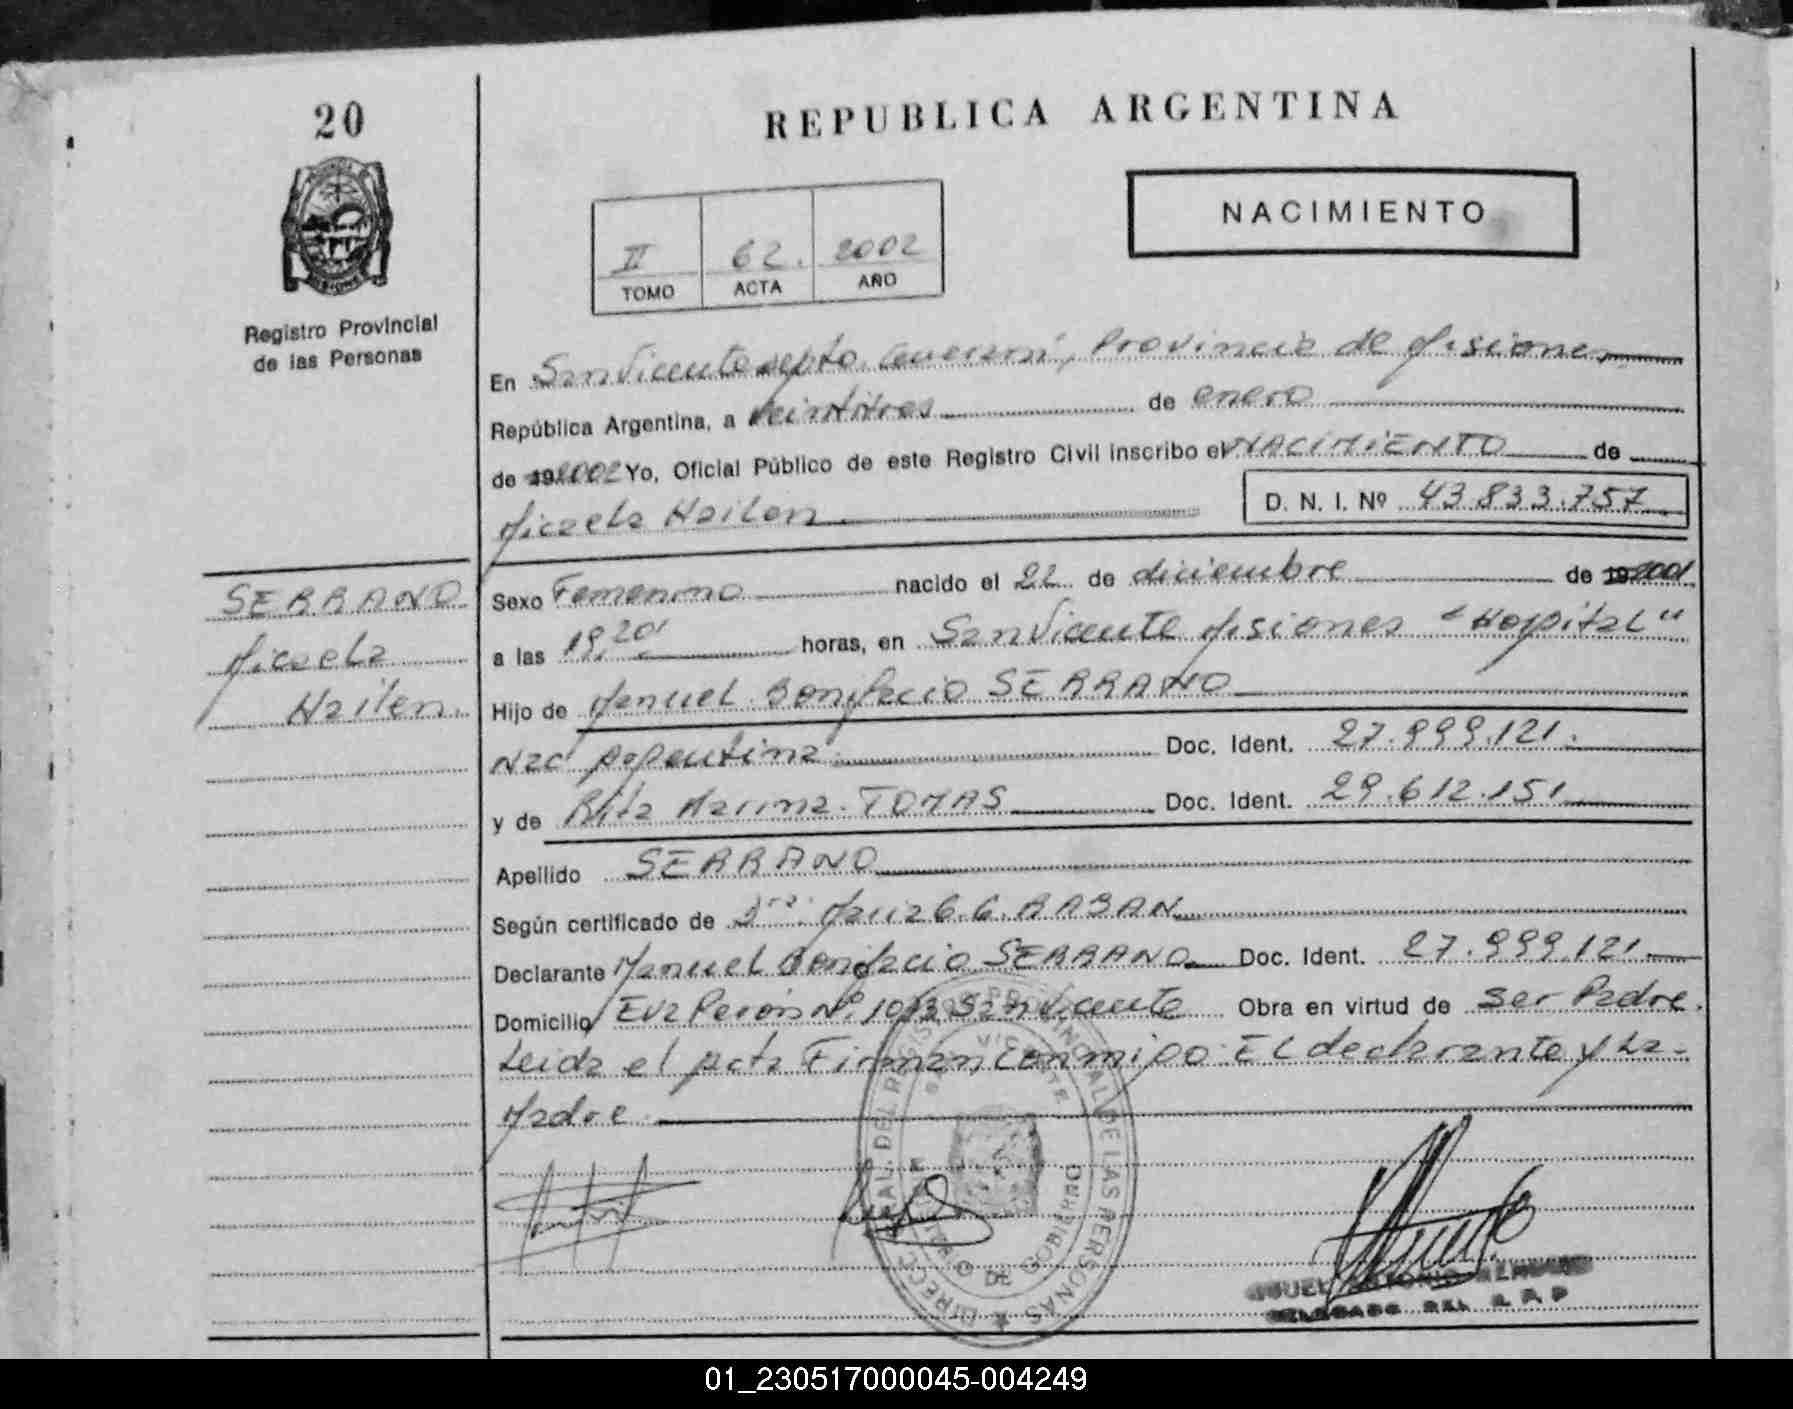 20
REPUBLICA ARGENTINA
NACIMIENTO
II 62. 2002
TOMO ACTA AÑO
Registro Provincial
de las Personas
En San Vicente depto. Guaraní, Provincia de Misiones
República Argentina, a veintitres de enero
de 192002 Yo, Oficial Público de este Registro Civil inscribo el NACIMIENTO de
Micaela Hailen D. N. I. Nº 43.833.757
SERRANO
Micaela
Hailen.
Sexo Femenino nacido el 22 de diciembre de 192001
a las 19,20' horas, en San Vicente Misiones "Hospital"
Hijo de Manuel Bonifacio SERRANO
Nac Argentina Doc. Ident. 27.999.121.
y de Rita Marina TOMAS Doc. Ident. 29.612.151
Apellido SERRANO
Según certificado de Dra. Maria G. G. RABAN
Declarante Manuel Bonifacio SERRANO Doc. Ident. 27.999.121
Domicilio Eva Perón Nº 1013 San Vicente Obra en virtud de ser Padre.
Leida el acta Firman conmigo El declarante y La
Madre.
DE LAS PERSONAS
DE GOBIERNO
ANTONIO
DELEGADO DEL R. P. P
01_230517000045-004249